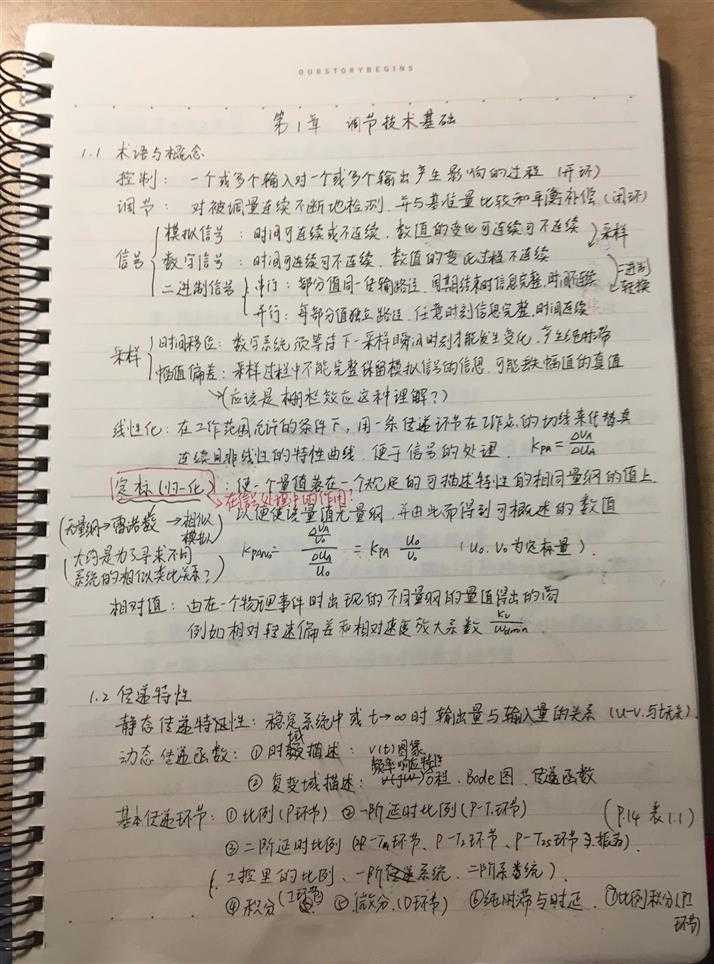 OURSTORYBEGINS
第1章 调节技术基础
1.1 术语与概念
控制：一个或多个输入对一个或多个输出产生影响的过程（开环）
调节：对被调量连续不断地检测，并与基准量比较和平衡补偿（闭环）
信号 模拟信号：时间可连续或不连续，数值的变化可连续可不连续
采样
数字信号：时间可连续可不连续，数值的变化过程不连续
二进制信号 串行：部分值同一传输路径，周期结束时信息完整，时间不连续
二进制转换
并行：每部分值独立路径，任意时刻信息完整，时间连续
采样 时间移位：数字系统须等待下一采样瞬间时刻才能发生变化，产生纯时滞
幅值偏差：采样过程中不能完整保留模拟信号的信息，可能丢幅值的真值
（应该是栅栏效应这种理解？）
线性化：在工作范围允许的条件下，用一条传递环节在工作点的切线来代替其
连续且非线性的特性曲线，便于信号的处理. KPA=ΔVA/ΔUA
定标（归一化）：使一个量值基在一个规定的可描述特性的相同量纲的值上
在信号处理中的作用？
以便使该量值无量纲，并由此而得到可概述的数值
（无量纲→雷诺数→相似模拟
大约是为了寻求不同系统的相似类比关系？）
= KPA U0/V0 （U0.V0为定标量）.
相对值：由在一个物理事件时出现的不同量纲的量值得出的商
例如相对转速偏差和相对速度放大系数
1.2 传递特性
静态传递特征性：稳定系统中或t→∞时输出量与输入量的关系（U-V.与t无关）.
动态传递函数：①时域描述：V(t)图象
②复变域描述：频率响应特性方程、Bode图、传递函数
基本传递环节：①比例(P环节) ②一阶延时比例(P-T1环节) (P.14 表1.1)
③二阶延时比例 环节、P-T2环节、P-T2S环节
（工控里的比例、一阶系统、二阶系统）.
④积分(I环节) ⑤微分(D环节) ⑥纯时滞与时延. ⑦比例积分(PI环节)